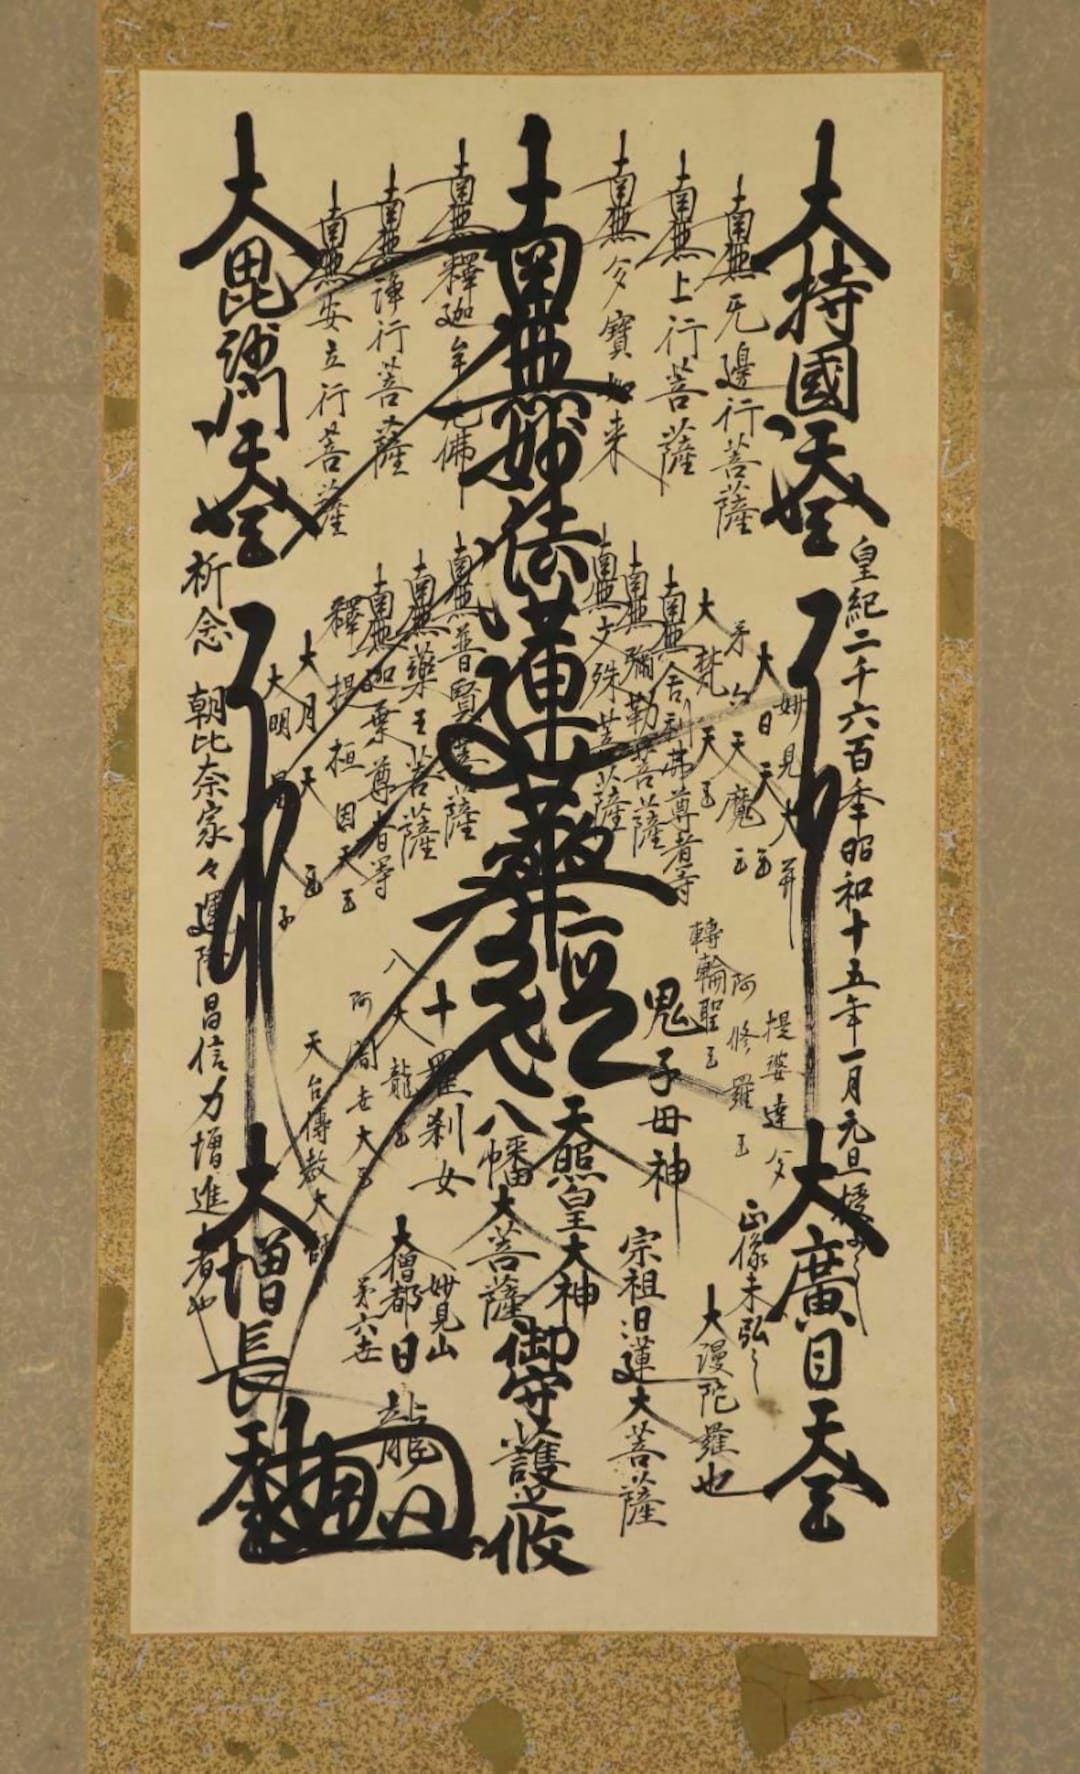 皇紀二千六百年昭和十五年一月元旦
大持國天王
大廣目天王
南無无邊行菩薩
南無上行菩薩
南無多寶如来
妙見大菩薩
大日天王
第六天魔王
大梵天王
南無舎利弗尊者等
南無彌勒菩薩
南無文殊菩薩
提婆達多
阿修羅王
轉輪聖王
鬼子母神
正像未弘之
大漫陀羅也
天照皇大神
宗祖日蓮大菩薩
南無妙法蓮華経
御守護之攸
八幡大菩薩
南無釋迦牟尼佛
南無浄行菩薩
南無安立行菩薩
南無普賢菩薩
南無藥王菩薩
南無迦葉尊者等
釋提桓因天王
大月天王
大明星天子
十羅刹女
八大龍王
阿闍世大王
天台傳教大師
妙見山
第六世
大僧都日龍
大毘沙門天王
大増長天王
祈念 朝比奈家々運隆昌信力増進者也